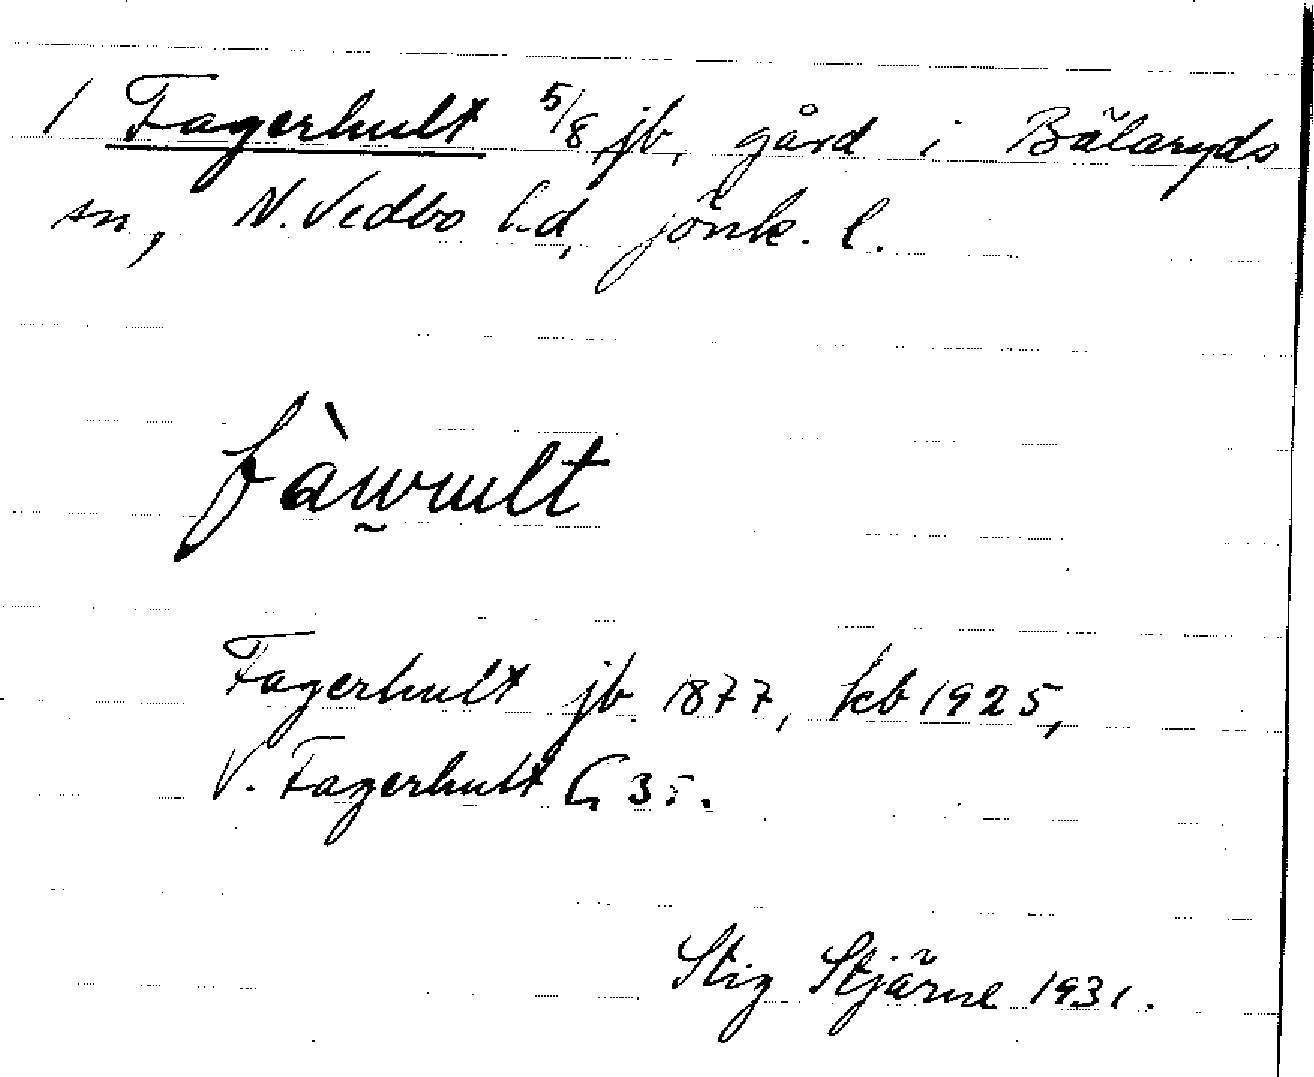 1 Fagerhult 5/8 jb, gård i Bälaryds
sn, N. Vedbo hd, jönk. l.
fàw̰rult
Fagerhult jb 1877, kb 1925,
V. Fagerhult G 35.
Stig Stjärne 1931.